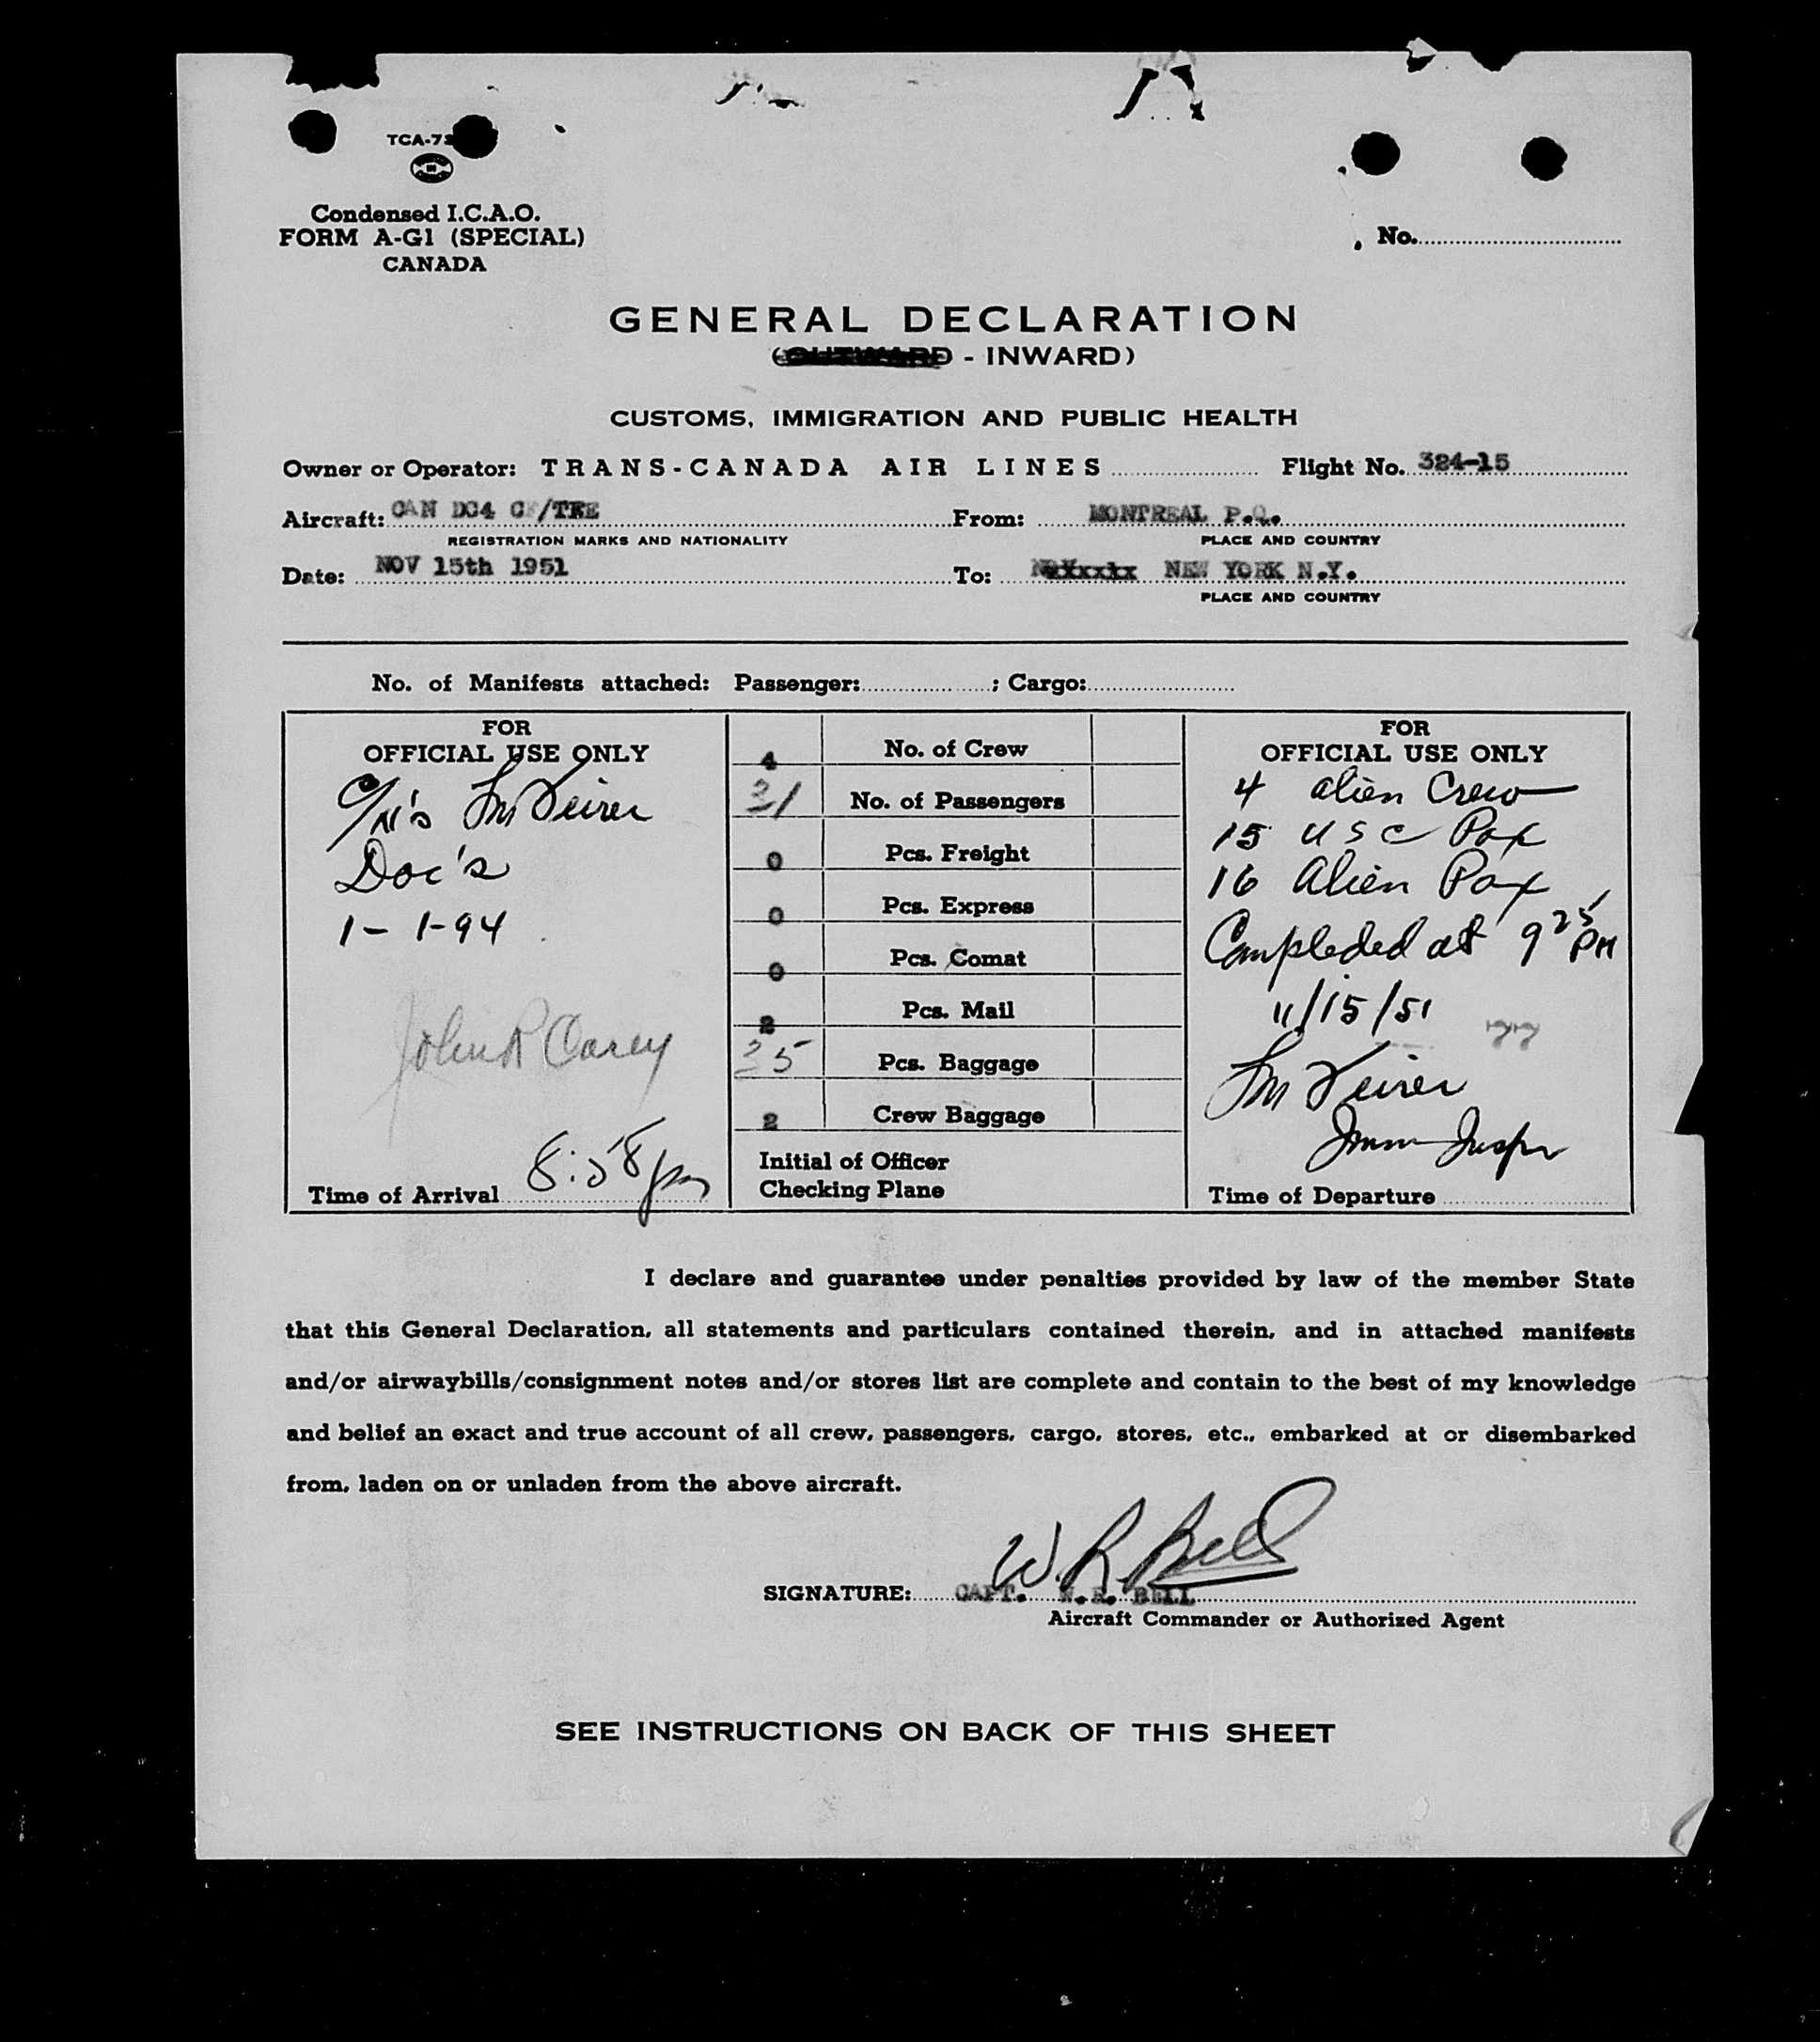 TCA-73
Condensed I.C.A.O.
FORM A-G1 (SPECIAL)
CANADA
No.
GENERAL DECLARATION
(OUTWARD - INWARD)
CUSTOMS, IMMIGRATION AND PUBLIC HEALTH
Owner or Operator: TRANS-CANADA AIR LINES Flight No. 324-15
Aircraft: CAN DC4 CF/TEE From: MONTREAL P.Q.
REGISTRATION MARKS AND NATIONALITY PLACE AND COUNTRY
Date: NOV 15th 1951 To: NEW YORK N.Y.
PLACE AND COUNTRY
No. of Manifests attached: Passenger: ; Cargo:
FOR
OFFICIAL USE ONLY
Doc's
1- 1-94
John R Carey
Time of Arrival 8:58 pm
4 No. of Crew
31 No. of Passengers
0 Pcs. Freight
0 Pcs. Express
0 Pcs. Comat
2 Pcs. Mail
35 Pcs. Baggage
2 Crew Baggage
Initial of Officer
Checking Plane
FOR
OFFICIAL USE ONLY
4 alien Crew
15 USC Pax
16 Alien Pax
Compleded at 9 25 PM
11/15/51
Time of Departure
I declare and guarantee under penalties provided by law of the member State
that this General Declaration, all statements and particulars contained therein, and in attached manifests
and/or airwaybills/consignment notes and/or stores list are complete and contain to the best of my knowledge
and belief an exact and true account of all crew, passengers, cargo, stores, etc., embarked at or disembarked
from, laden on or unladen from the above aircraft.
W. R. Bell
SIGNATURE: CAPT. W. R. BELL
Aircraft Commander or Authorized Agent
SEE INSTRUCTIONS ON BACK OF THIS SHEET